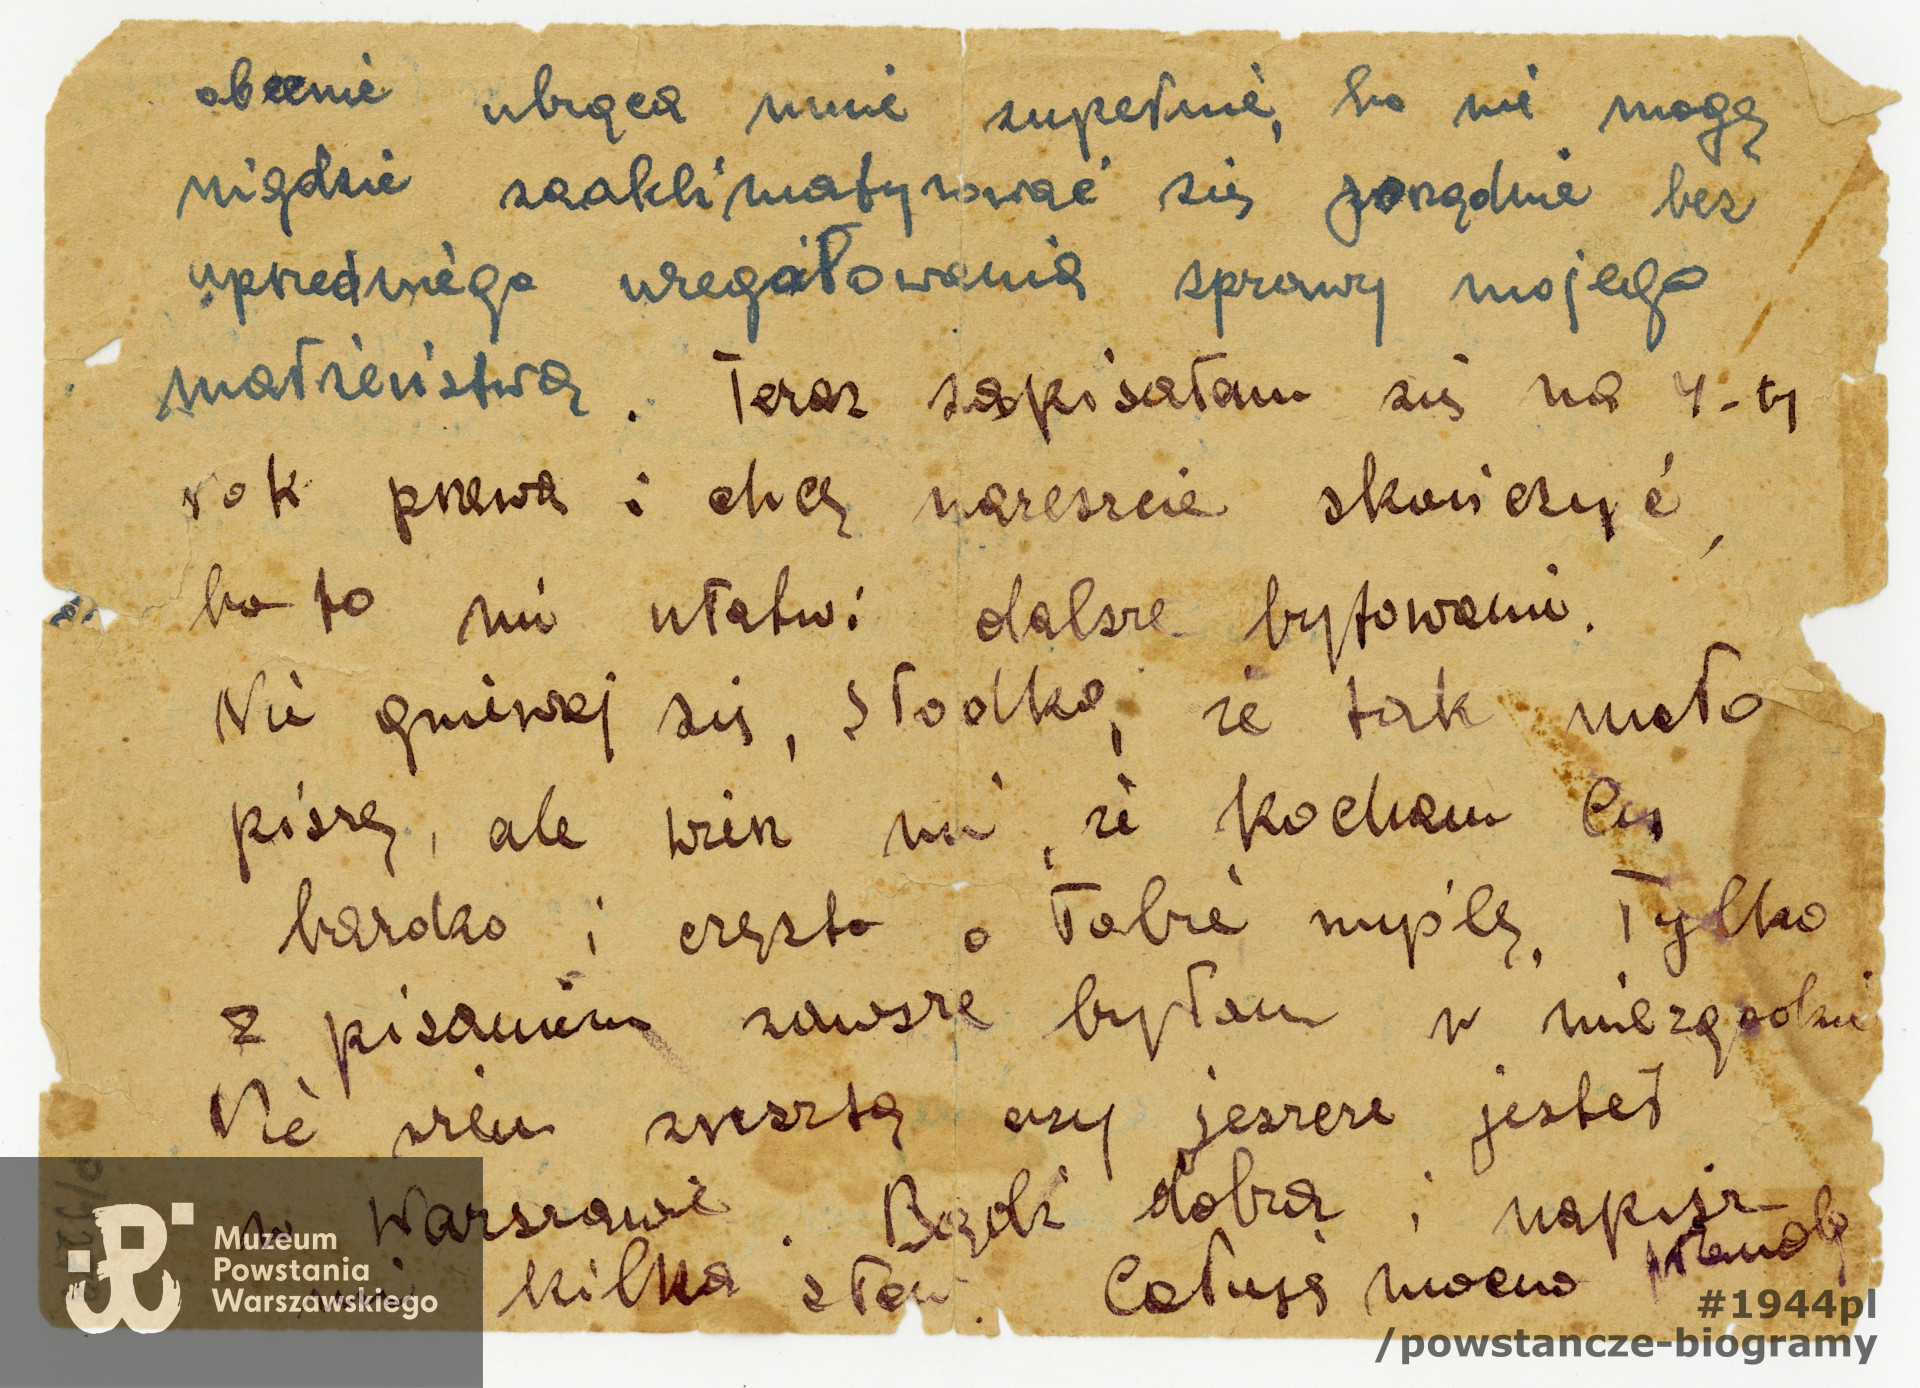 obecnie ubrąca mnie zupełnie, bo nie mogę
nigdzie zaaklimatyzować się porządnie bez
uprzedniego uregulowania sprawy mojego
małżeństwa. Teraz zapisałam się na 4-ty
rok prawa i chcę nareszcie skończyć,
bo to mi ułatwi dalsze bytowanie.
Nie gniewaj się, Słodka, że tak mało
piszę, ale wierz mi, że kocham Cię
bardzo i często o Tobie myślę, Tylko
z pisaniem zawsze byłam w niezgodzie
Nie wiem zresztą czy jeszcze jesteś
w Warszawie. Bądź dobra i napisz
mi kilka słów. Całuję mocno
Muzeum
Powstania
Warszawskiego
#1944pl
/powstancze-biogramy